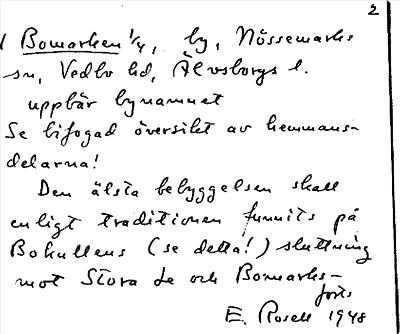 2
1 Bomarken 1/4, by, Nössemarks
sn, Vedbo hd, Älvsborgs l.
uppbär bynamnet
Se bifogad översikt av hemmans-
delarna!
Den älsta bebyggelsen skall
enligt traditionen funnits på
Bokullens (se detta!) sluttning
mot Stora Le och Bomarks-
forts
E. Rosell 1948